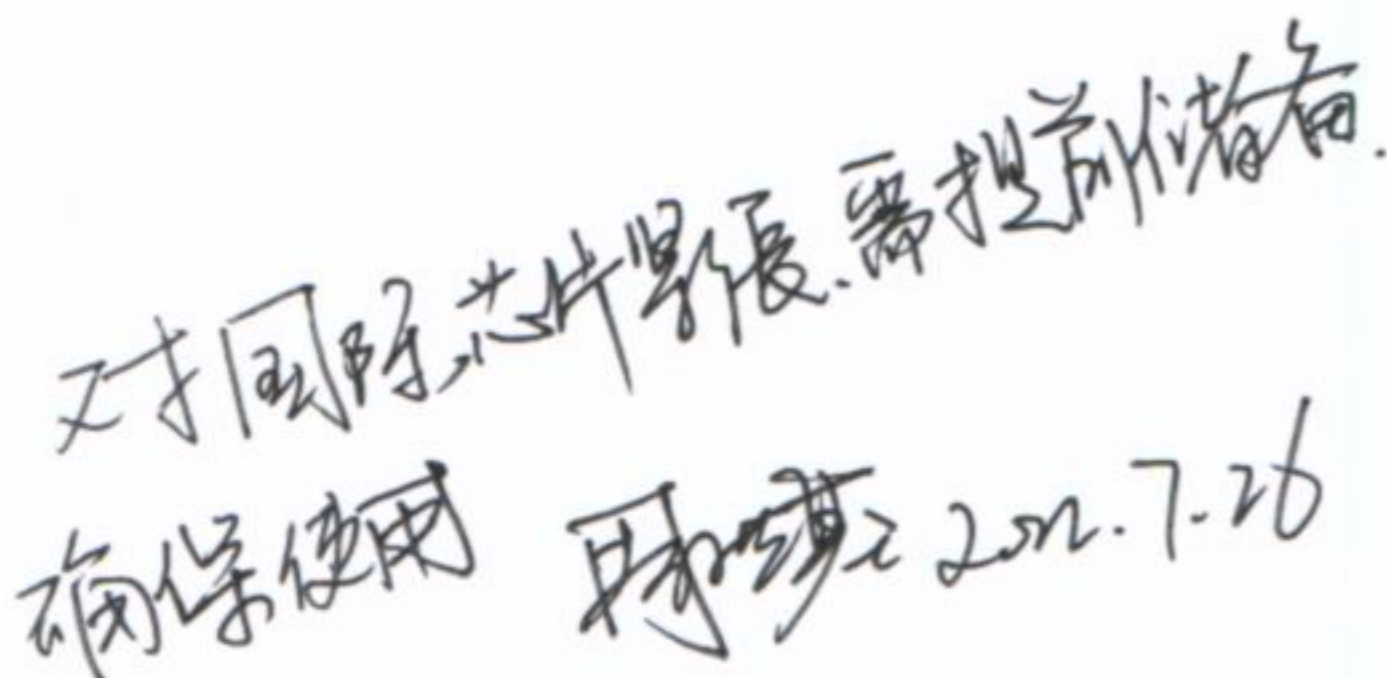 对国际芯片紧张.需提前储备.
确保使用 周 2022.7.26